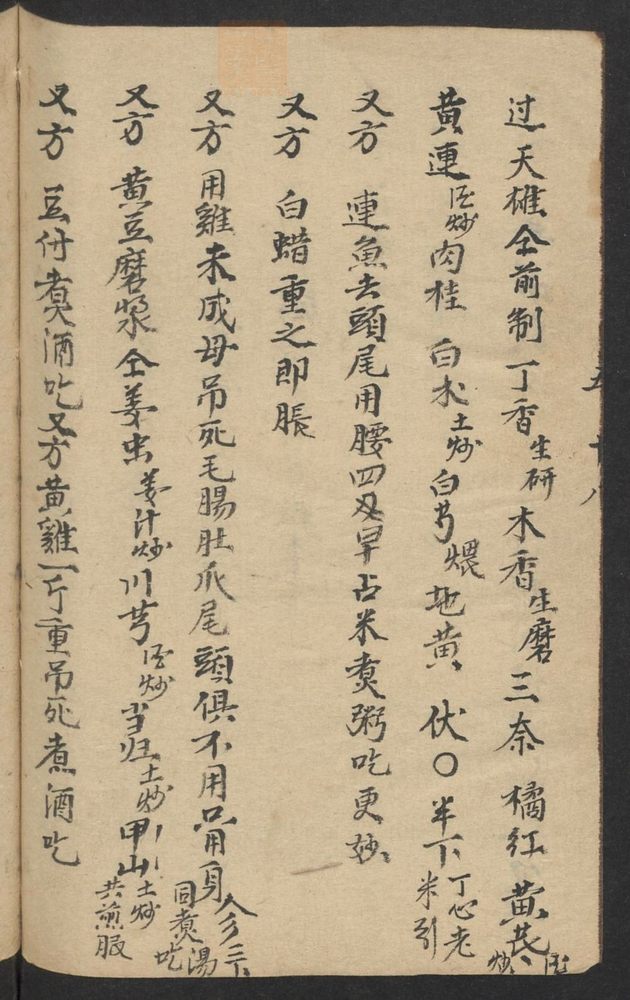 过天雄仝前制丁香生研木香生磨三奈橘红黄芪炒
黄連炒肉桂白朮土炒白芍煨地黄伏〇半下丁心老米引
又方連魚去頭尾用腰四早占米煑粥吃更妙
又方白蜡重之即脹
又方用雞未成母吊死毛腸肚爪尾頭俱不用只用身同煑湯吃
又方黄豆磨漿仝姜虫姜汁炒川芎炒当归土炒甲山土炒共煎服
又方豆付煑酒吃又方黄雞一斤重吊死煮酒吃
五十八